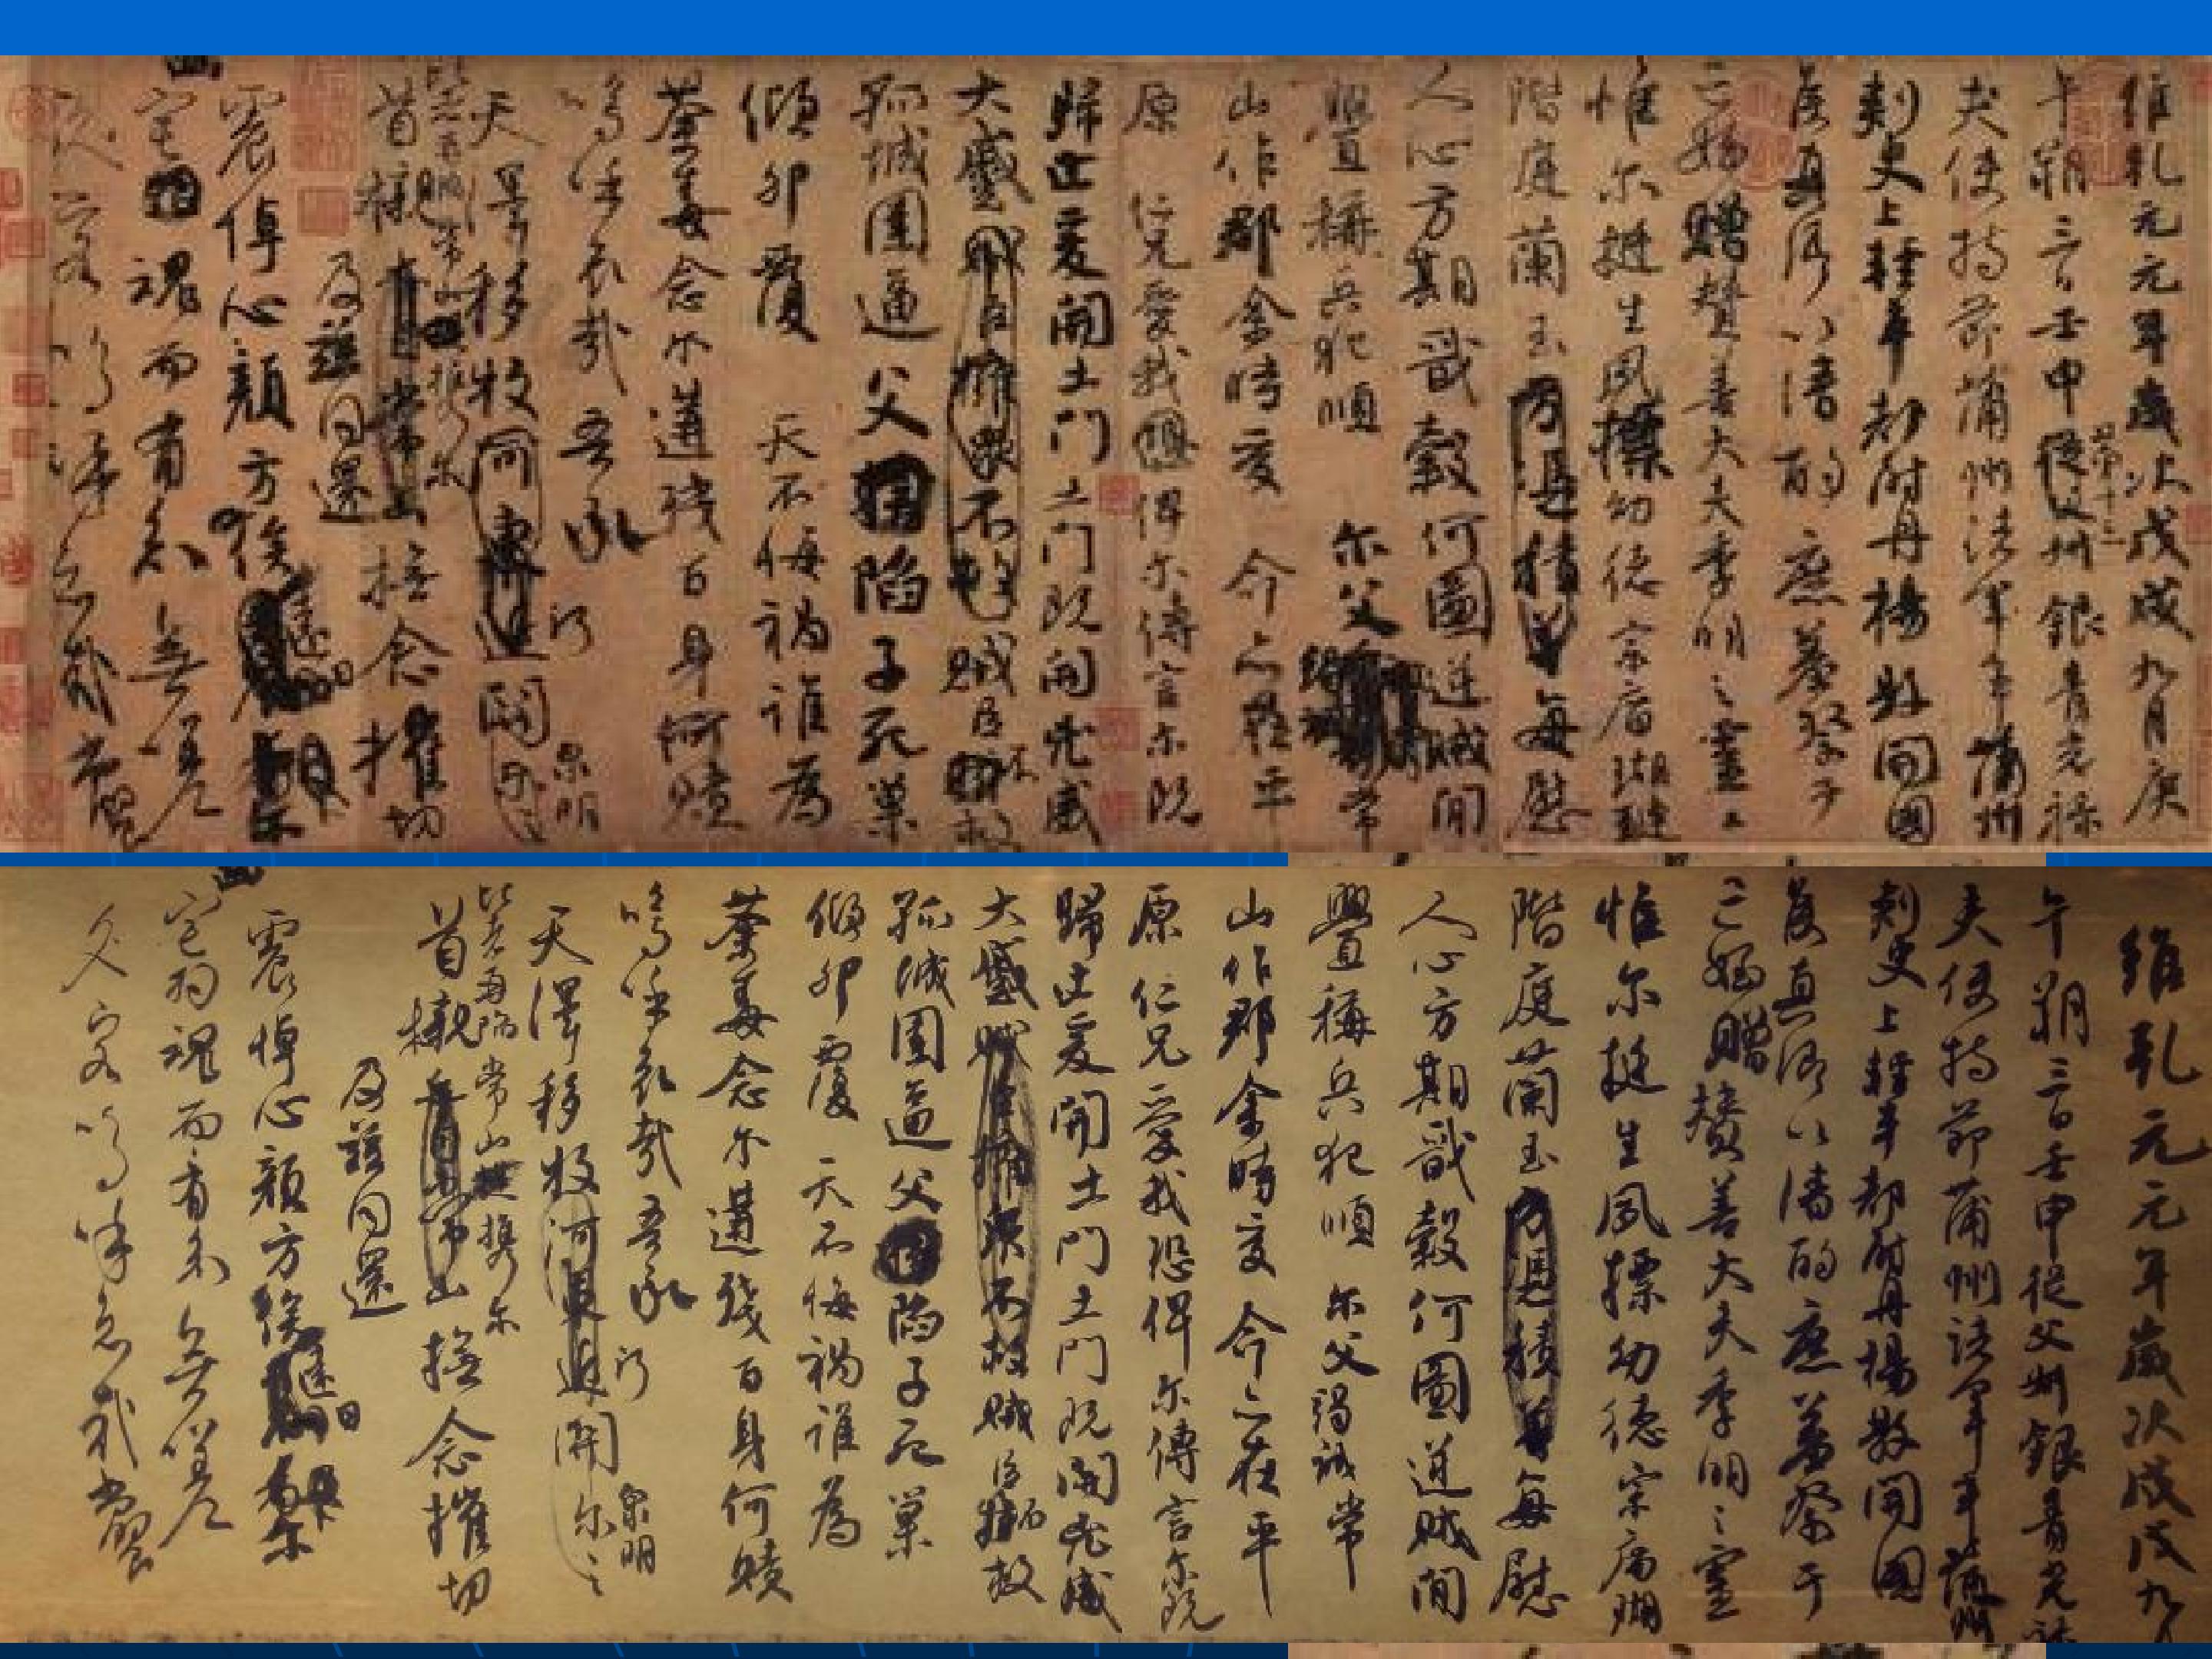 維乾元元年歲次戊戌九月庚
午朔三日壬申從父叔銀青光祿
第十三
夫使持節蒲州諸軍事蒲州
刺史上輕車都尉丹楊縣開國
侯真卿以清酌庶羞祭于
亡姪贈贊善大夫季明之靈曰
惟尔挺生夙標幼德宗廟瑚璉
階庭蘭玉方憑積善每慰
人心方期戩穀何圖逆賊閒
釁稱兵犯順尔父竭誠常
山作郡余時受命亦在平
原仁兄愛我恐俾尔傳言尔既
歸止爰開土門土門既開凶威
大蹙賊臣擁眾不救賊臣不救
孤城圍逼父陷子死巢
傾卵覆天不悔禍誰為
荼毒念尔遘殘百身何贖
嗚呼哀哉吾承
天澤移牧河東近關尔之
泉明
比者再陷常山攜尔
首櫬常山撫念摧切
及茲同還
震悼心顏方俟遠日
宅魂而有知無嗟
久客嗚呼哀哉尚饗
維乾元元年歲次戊戌九
午朔三日壬申從父叔銀青光祿
夫使持節蒲州諸軍事蒲州
刺史上輕車都尉丹楊縣開國
侯真卿以清酌庶羞祭于
亡姪贈贊善大夫季明之靈
惟尔挺生夙標幼德宗廟瑚
階庭蘭玉方憑積善每慰
人心方期戩穀何圖逆賊閒
釁稱兵犯順尔父竭誠常
山作郡余時受命亦在平
原仁兄愛我恐俾尔傳言尔既
歸止爰開土門土門既開凶威
大蹙賊臣擁眾不救賊臣不救
孤城圍逼父陷子死巢
傾卵覆天不悔禍誰為
荼毒念尔遘殘百身何贖
嗚呼哀哉吾承
天澤移牧河東近關尔之
泉明
比者再陷常山攜尔
首櫬常山撫念摧切
及茲同還
震悼心顏方俟遠日
宅魂而有知無嗟
久客嗚呼哀哉尚饗